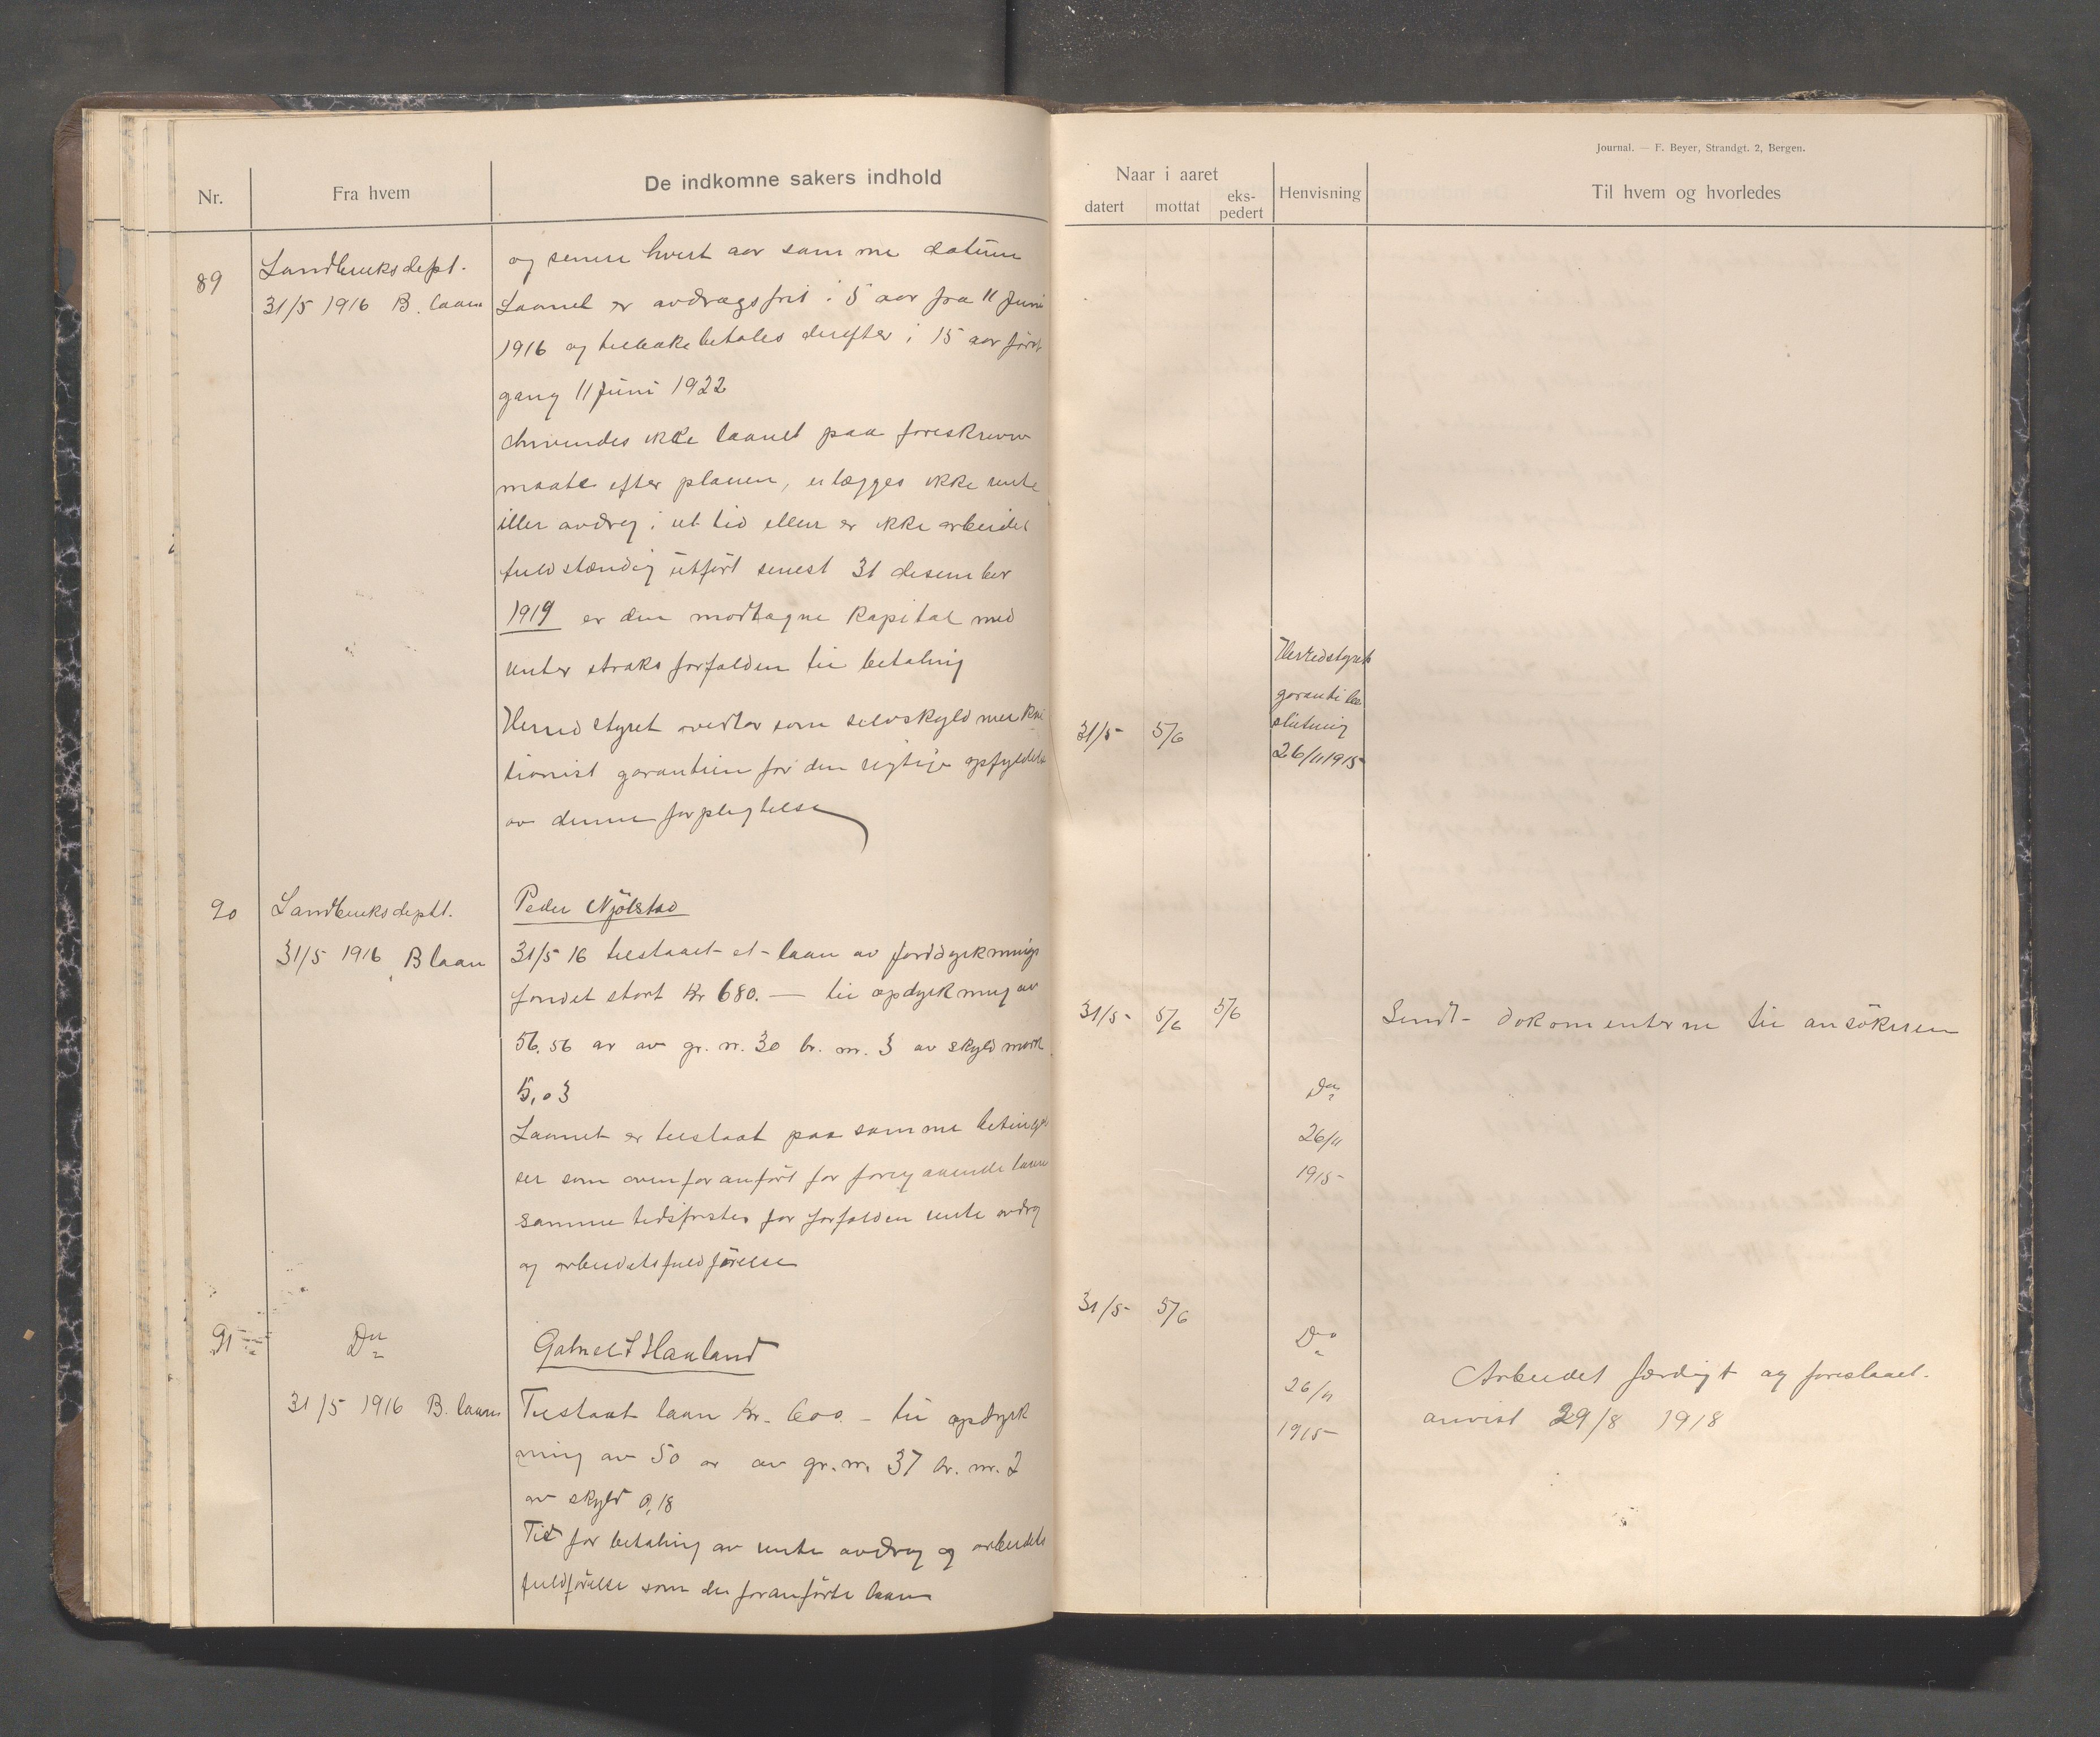 Nr.
Fra hvem
De indkomne sakers indhold
89
Landbruksdept.
31/5 1916 B. laan
og senere hvert aar samme datum
Laanet er avdragsfrit i 5 aar fra 11 Juni
1916 og tilbakebetales derefter i 15 aar först
gang 11 Juni 1922
Anvendes ikke laanet paa foreskrevv
maate efter planen, erlægges ikke rente
eller avdrag i ret tid eller er ikke arbeidet
fuldstændig utfört senest 31 desember
1919 er den mottagne Kapital med
renter straks forfalden til betaling
Herredstyret overtar som selvskyldnerkau
tionist garantien for den rigtige opfyldelse
av denne forpligtelse
90
Landbruksdeptt.
31/5 1916 B laan
Peder Njölstad
31/5 16 tilstaaet et laan av jorddyrknings
fondet stort Kr 680. — til opdyrkning av
56,56 ar av gr. nr. 30 br. nr. 3 av skyld mark
5,03
Laanet er tilstaat paa samme betingel
ser som ovenfor anfört for foregaaende laan
samme tidsfrister for forfalden rente avdrag
og arbeidets fuldförelse
91
Do
31/5 1916 B. laan
Gabriel T Hauland
Tilstaat laan Kr. 600. — til opdyrk
ning av 50 ar av gr. nr. 37 br. nr. 2
av skyld 0,18
Tid for betaling av rente avdrag og arbeidets
fuldförelse som de foranförte laan
Journal. — F. Beyer, Strandgt. 2, Bergen.
Naar i aaret
datert
mottat
eks-
pedert
Henvisning
Til hvem og hvorledes
31/5
5/6
Herredstyrets
garanti be
slutning
26/11 1915
31/5
5/6
5/6
Sendt dokomenterne til ansökeren
Do
26/11
1915
31/5
5/6
Do
26/11
1915
Arbeidet færdigt og foreslaaet
anvist 29/8 1918